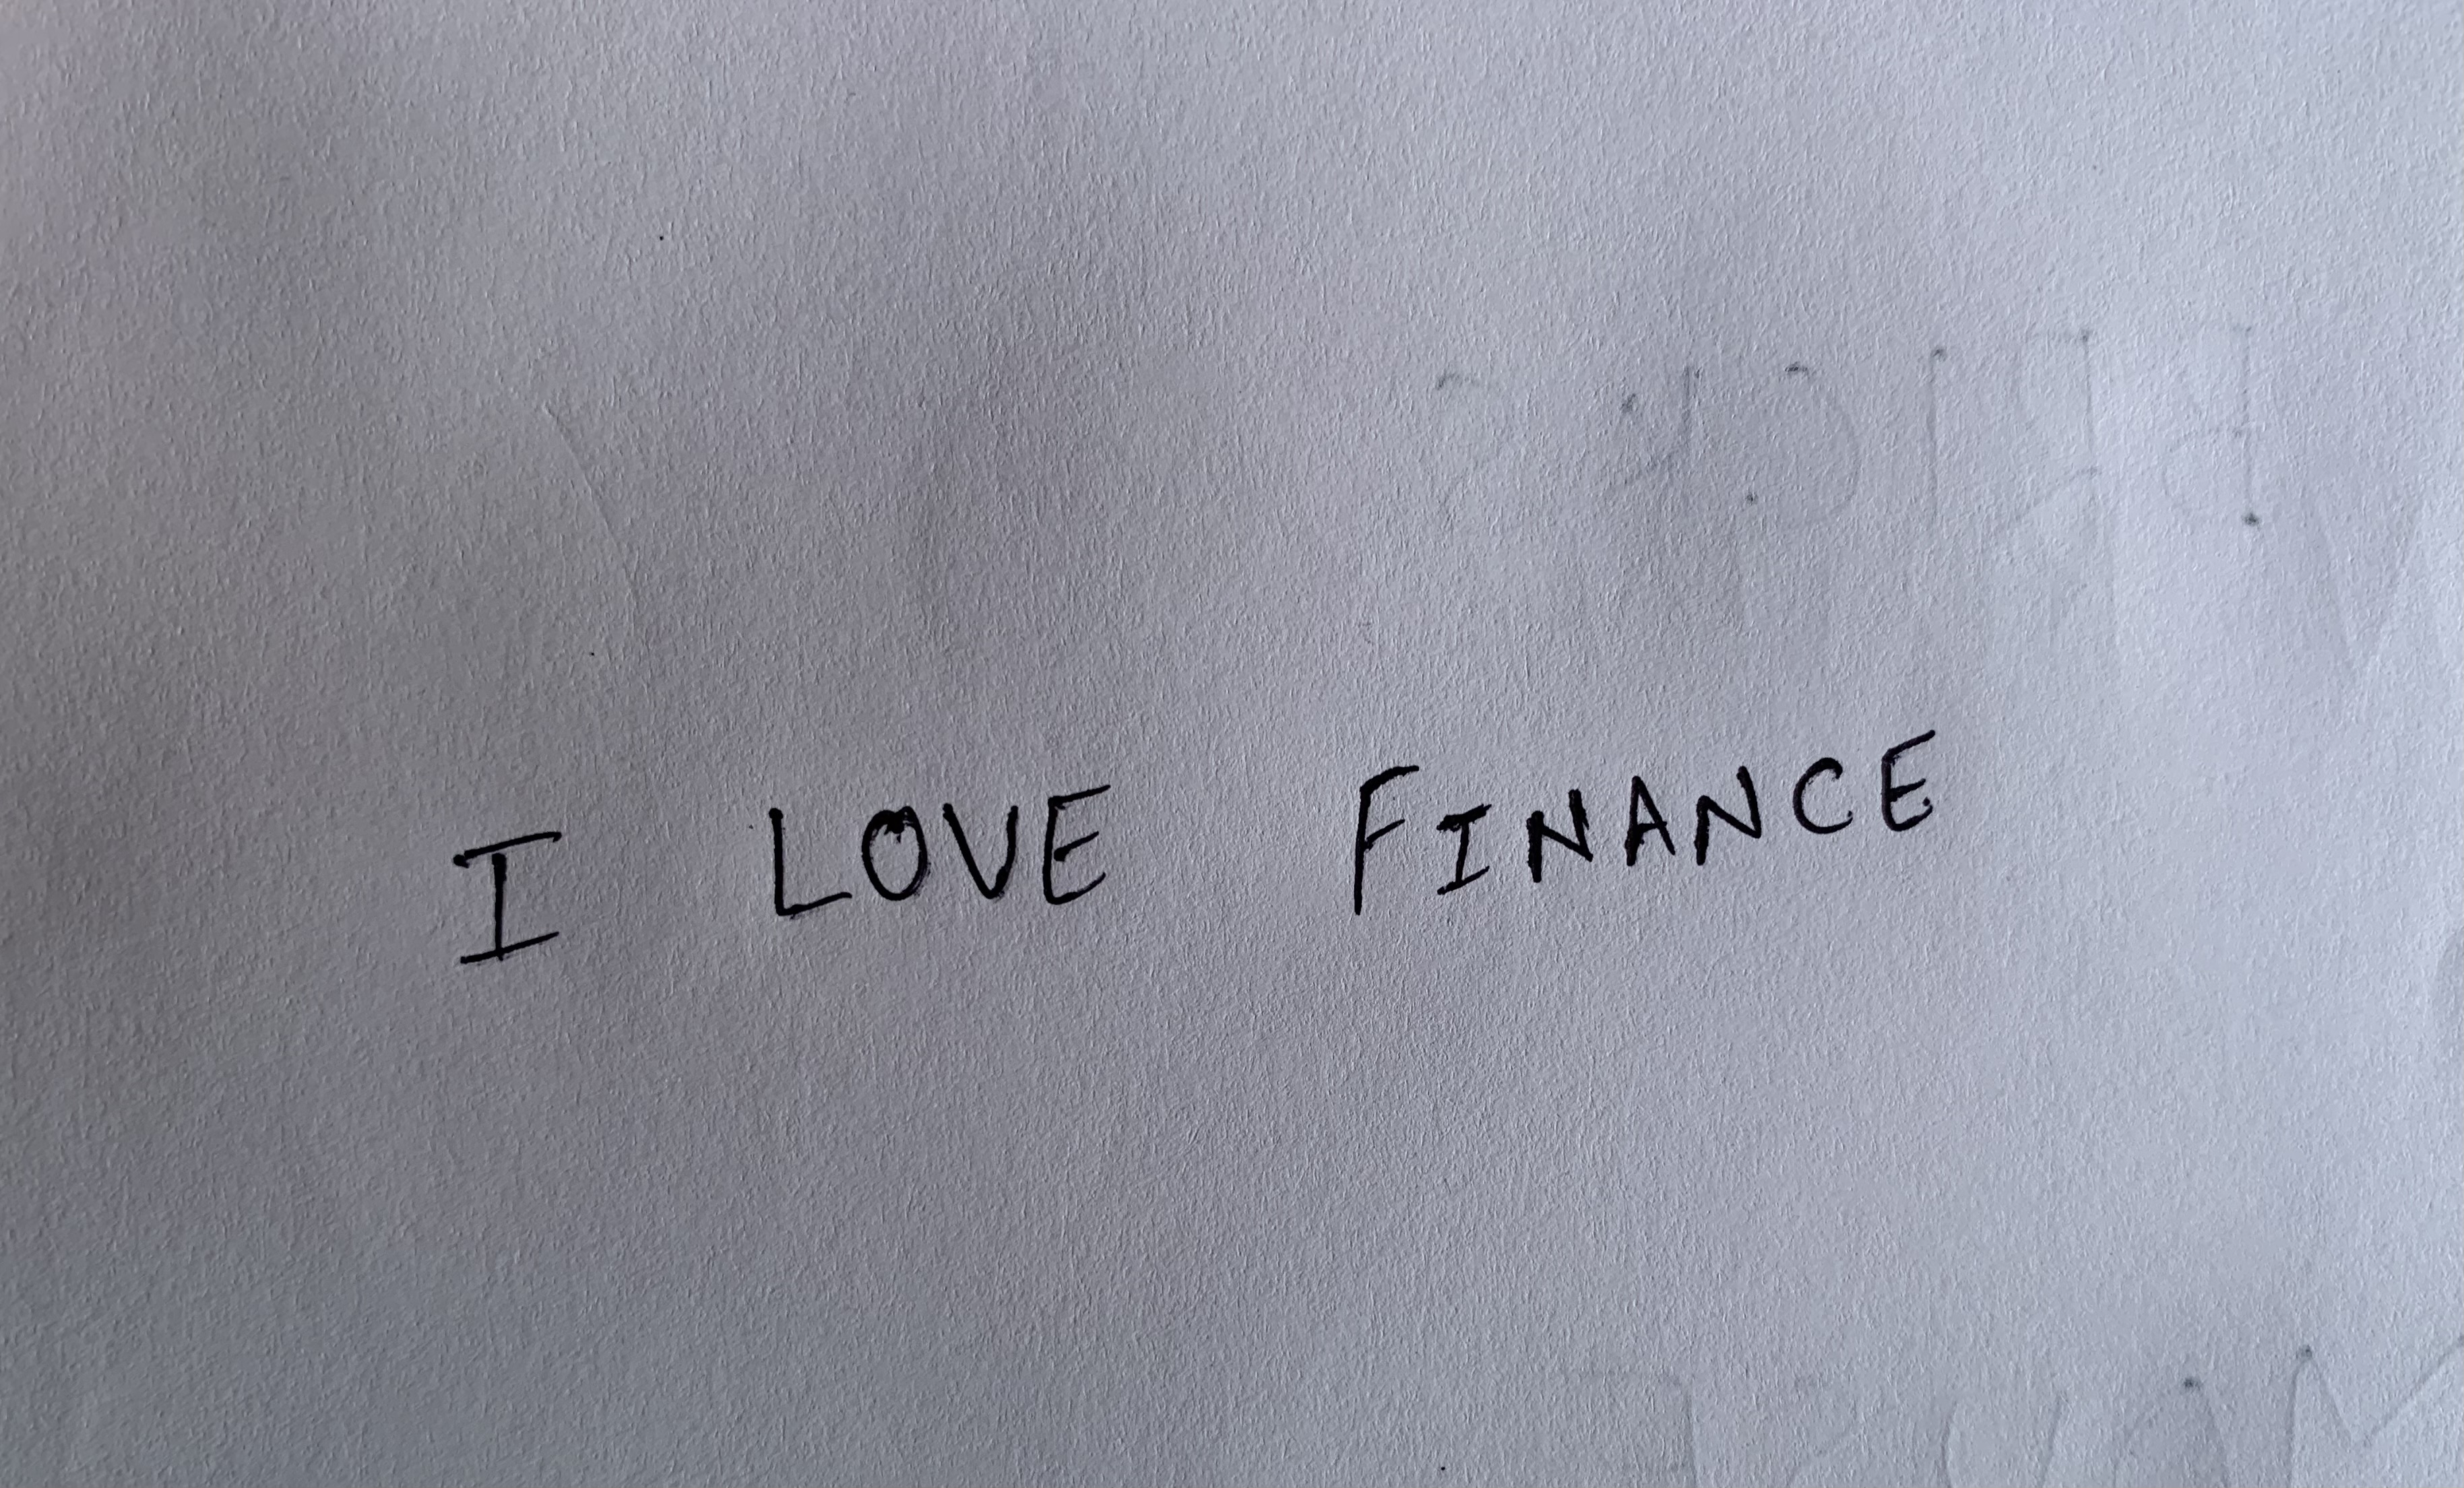 I LOVE FINANCE